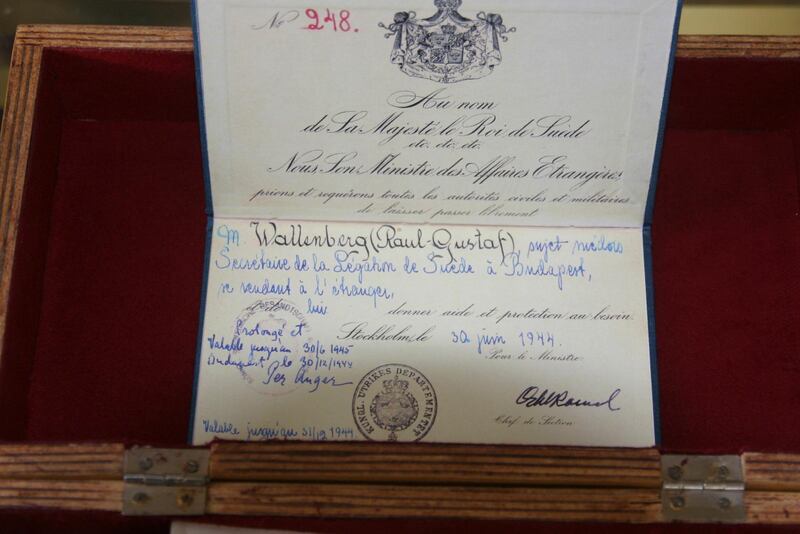 No 248.
Au nom
de Sa Majesté le Roi de Suède
etc. etc. etc.
Nous Son Ministre des Affaires Etrangères
prions et requérons toutes les autorités civiles et militaires
de laisser passer librement
M. Wallenberg (Raul-Gustaf), sujet suédois
Secrétaire de la Légation de Suède à Budapest,
se rendant à l'étranger,
et de lui donner aide et protection au besoin.
Stockholm, le 30 juin 1944.
Pour le Ministre
Prolongé et
Valable jusqu'au 30/6 1945
Budapest le 30/12 1944
Per Anger
KUNGL. UTRIKES DEPARTEMENTET
Chef de Section
Valable jusqu'au 31/12 1944